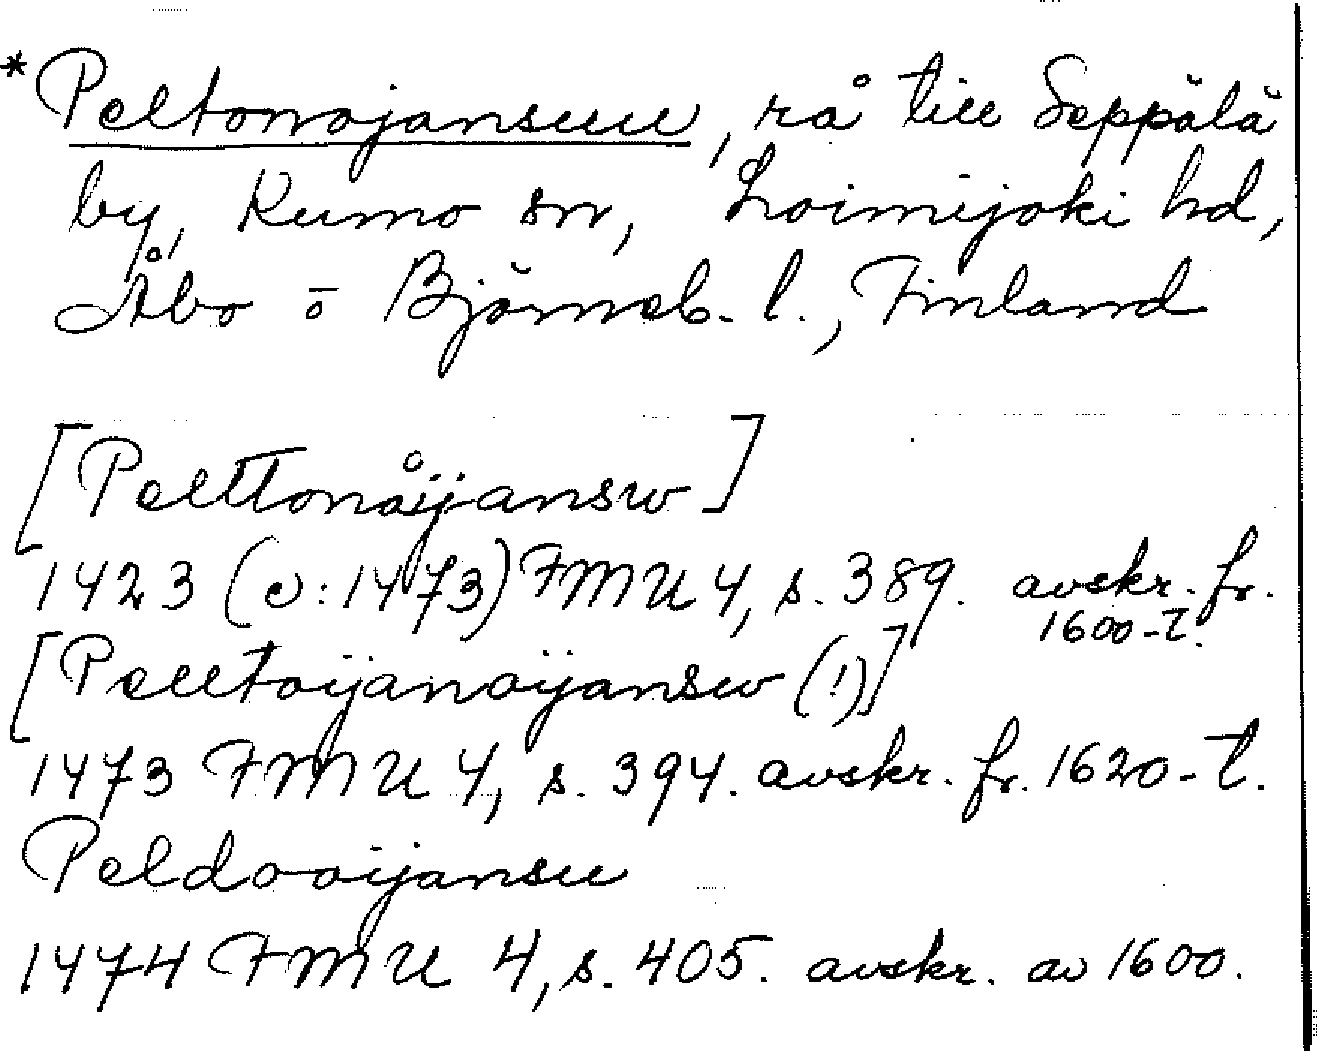 *Peltonojansuu, rå till Seppälä
by, Kumo sn, Loimijoki hd,
Åbo o Björneb. l., Finland
[Pelttonåijansw]
1423 (ɔ: 1473) FMU 4, s. 389. avskr. fr.
1600-t.
[Pelltoijanoijansw (!)]
1473 FMU 4, s. 394. avskr. fr. 1620-t.
Peldooijansu
1474 FMU 4, s. 405. avskr. av 1600.